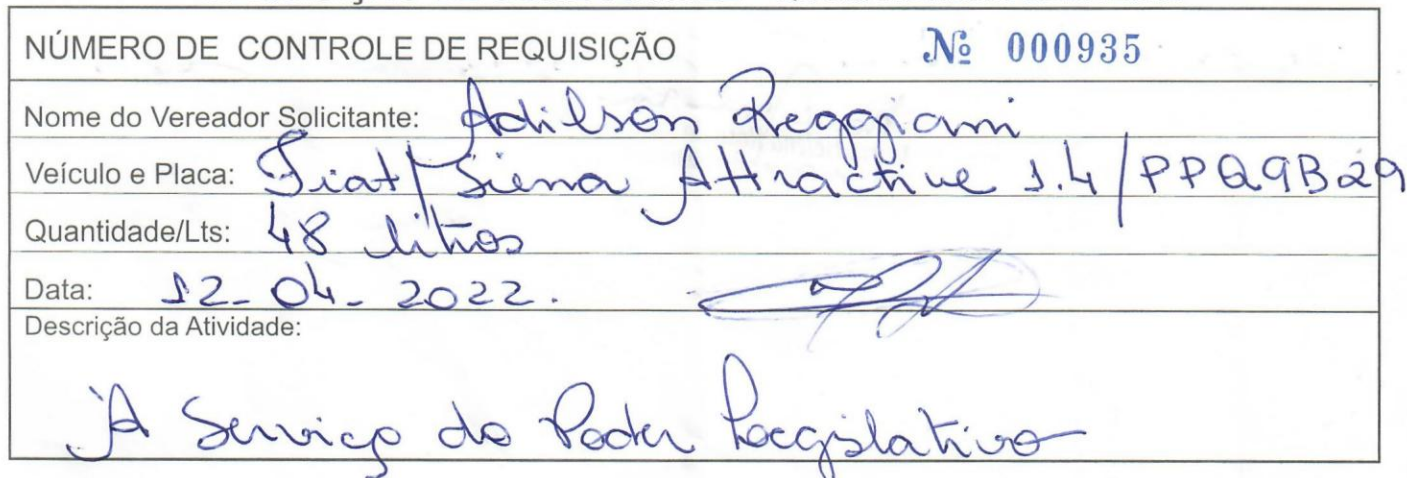 NÚMERO DE CONTROLE DE REQUISIÇÃO Nº 000935
Nome do Vereador Solicitante: Adilson Reggiani
Veículo e Placa: Fiat/Siena Attractive 1.4/PPQ9B29
Quantidade/Lts: 48 litros
Data: 12-04-2022.
Descrição da Atividade:
À Serviço do Poder Legislativo